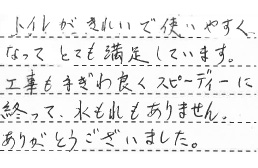 トイレが、きれいで使いやすく
なって とても満足しています。
工事もてぎわ良くスピーディーに
終って、水もれもありません。
ありがとうございました。